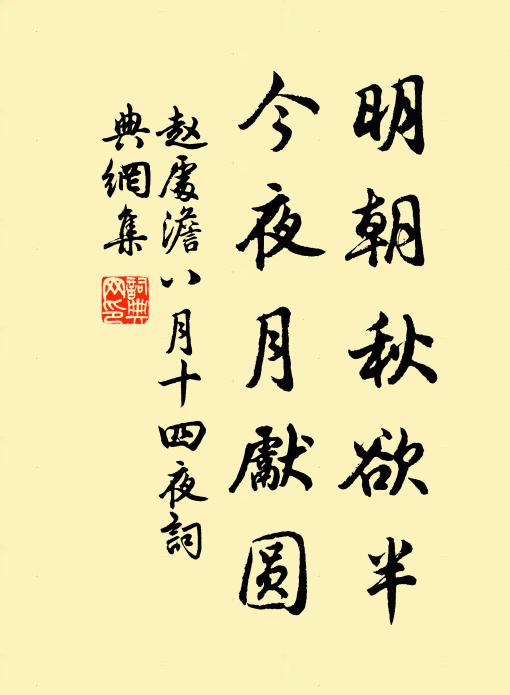 明朝秋欲半
今夜月獻圆
赵處澹八月十四夜詞
典網集
詞典
网印